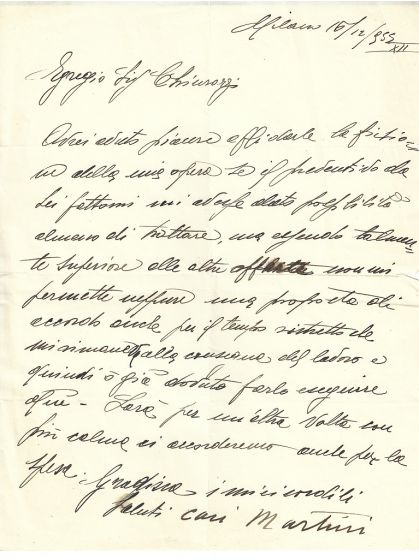 Milano 16/12/935 XII
Egregio Sig Chiurazzi
Avrei avuto piacere affidarle la fusio=
ne della mia opera se il preventivo da
Lei fattomi mi avesse dato possibilità
almeno di trattare, ma essendo talmen=
te superiore alle altre offerte non mi
permette neppure una proposta di
accordo anche per il tempo ristretto che
mi rimane alla consegna del lavoro e
quindi ò già dovuto farlo eseguire
qui - Sarà per un'altra Volta con
più calma ci accorderemo anche per la
spesa. Gradisca i miei cordiali
Saluti Martini